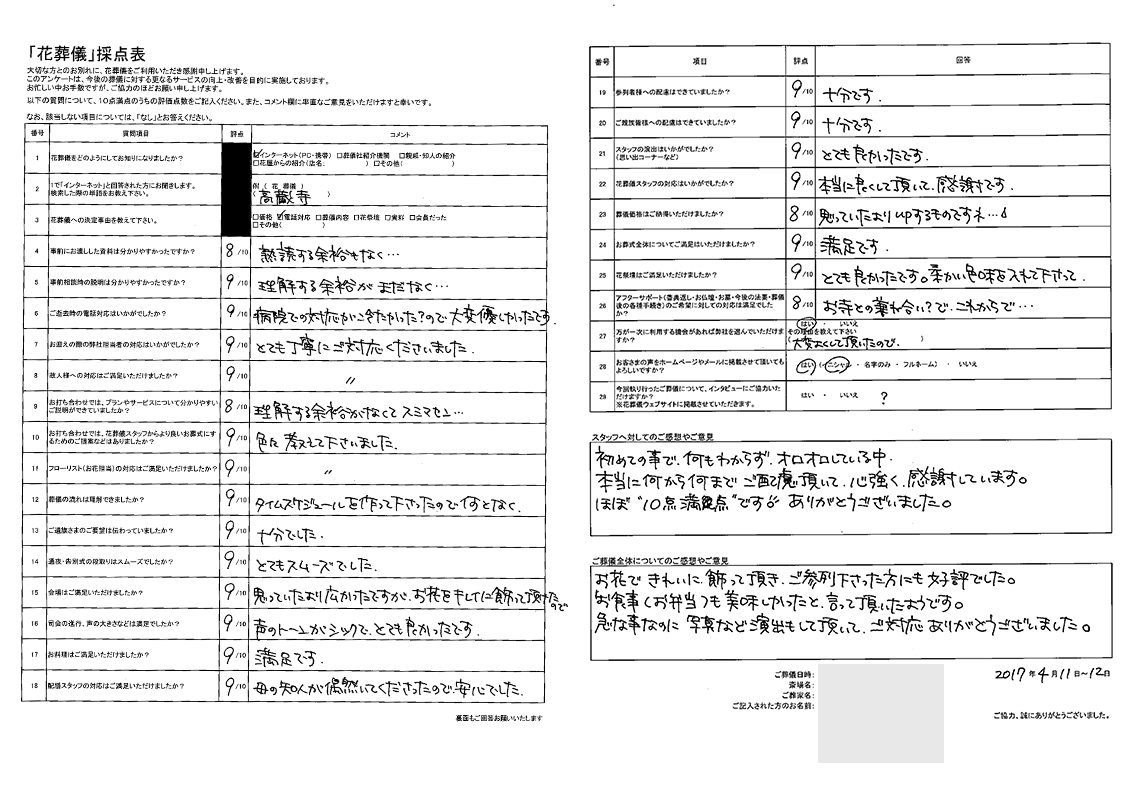 「花葬儀」採点表
大切な方とのお別れに、花葬儀をご利用いただき感謝申し上げます。
このアンケートは、今後の葬儀に対する更なるサービスの向上・改善を目的に実施しております。
お忙しい中お手数ですが、ご協力のほどお願い申し上げます。
以下の質問について、10点満点のうちの評価点数をご記入ください。また、コメント欄に率直なご意見をいただけますと幸いです。
なお、該当しない項目については、「なし」とお答えください。
番号 質問項目 評点 コメント
1 花葬儀をどのようにしてお知りになりましたか? ☑インターネット(PC・携帯) □葬儀社紹介機関 □親戚・知人の紹介
□花屋からの紹介(店名: ) □その他( )
2 1で「インターネット」と回答された方にお聞きします。
検索した際の単語をお教え下さい。
例 ( 花 葬儀 )
( 高蔵寺 )
3 花葬儀への決定事由を教えて下さい。 □価格 ☑電話対応 □葬儀内容 □花祭壇 □資料 □会員だった
□その他( )
4 事前にお渡しした資料は分かりやすかったですか? 8/10 熟読する余裕もなく…
5 事前相談時の説明は分かりやすかったですか? 9/10 理解する余裕がまだなく…
6 ご逝去時の電話対応はいかがでしたか? 9/10 病院での対応がつめたかった?ので大変優しかったです
7 お迎えの際の弊社担当者の対応はいかがでしたか? 9/10 とても丁寧にご対応くださいました.
8 故人様への対応はご満足いただけましたか? 9/10 〃
9 お打ち合わせでは、プランやサービスについて分かりやすい
ご説明ができていましたか? 8/10 理解する余裕がなくてスミマセン…
10 お打ち合わせでは、花葬儀スタッフからより良いお葬式にす
るためのご提案などはありましたか? 9/10 色々教えて下さいました.
11 フローリスト(お花担当)の対応はご満足いただけましたか? 9/10 〃
12 葬儀の流れは理解できましたか? 9/10 タイムスケジュールを作って下さったので何となく.
13 ご遺族さまのご要望は伝わっていましたか? 9/10 十分でした.
14 通夜・告別式の段取りはスムーズでしたか? 9/10 とてもスムーズでした.
15 会場はご満足いただけましたか? 9/10 思っていたより広かったですが、お花をキレイに飾って頂けたので
16 司会の進行、声の大きさなどは満足でしたか? 9/10 声のトーンがシックで、とても良かったです.
17 お料理はご満足いただけましたか? 9/10 満足です.
18 配膳スタッフの対応はご満足いただけましたか? 9/10 母の知人が偶然いてくださったので安心でした.
裏面もご回答お願いいたします
番号 項目 評点 回答
19 参列者様への配慮はできていましたか? 9/10 十分です.
20 ご親族皆様への配慮はできていましたか? 9/10 十分です.
21 スタッフの演出はいかがでしたか?
(思い出コーナーなど) 9/10 とても良かったです.
22 花葬儀スタッフの対応はいかがでしたか? 9/10 本当に良くして頂いて、感謝です.
23 葬儀価格はご納得いただけましたか? 8/10 思っていたよりupするものですネ…
24 お葬式全体についてご満足はいただけましたか? 9/10 満足です.
25 花祭壇はご満足いただけましたか? 9/10 とても良かったです。柔かい色味を入れて下さって.
26 アフターサポート(香典返し・お仏壇・お墓・今後の法要・葬儀
後の各種手続き)のご希望に対しての対応は満足でした
か? 8/10 お寺との兼ね合い?で、これからで…
27 万が一次に利用する機会があれば弊社を選んでいただけま
すか?
はい ・ いいえ
その理由を教えて下さい
( 大変よくして頂いたので. )
28 お客さまの声をホームページやメールに掲載させて頂いても
よろしいですか? はい (イニシャル ・ 名字のみ ・ フルネーム) ・ いいえ
29 今回執り行ったご葬儀について、インタビューにご協力いた
だけますか?
※花葬儀ウェブサイトに掲載させていただきます。
はい ・ いいえ ?
スタッフへ対してのご感想やご意見
初めての事で、何もわからず、オロオロしている中.
本当に何から何までご配慮頂いて、心強く、感謝しています。
ほぼ“10点満点”です ありがとうございました。
ご葬儀全体についてのご感想やご意見
お花できれいに飾って頂き、ご参列下さった方にも好評でした。
お食事(お弁当)も美味しかったと、言って頂いたようです。
急な事なのに写真など演出もして頂いて、ご対応ありがとうございました。
ご葬儀日時: 2017年4月11日~12日
斎場名:
ご葬家名:
ご記入された方のお名前:
ご協力、誠にありがとうございました。